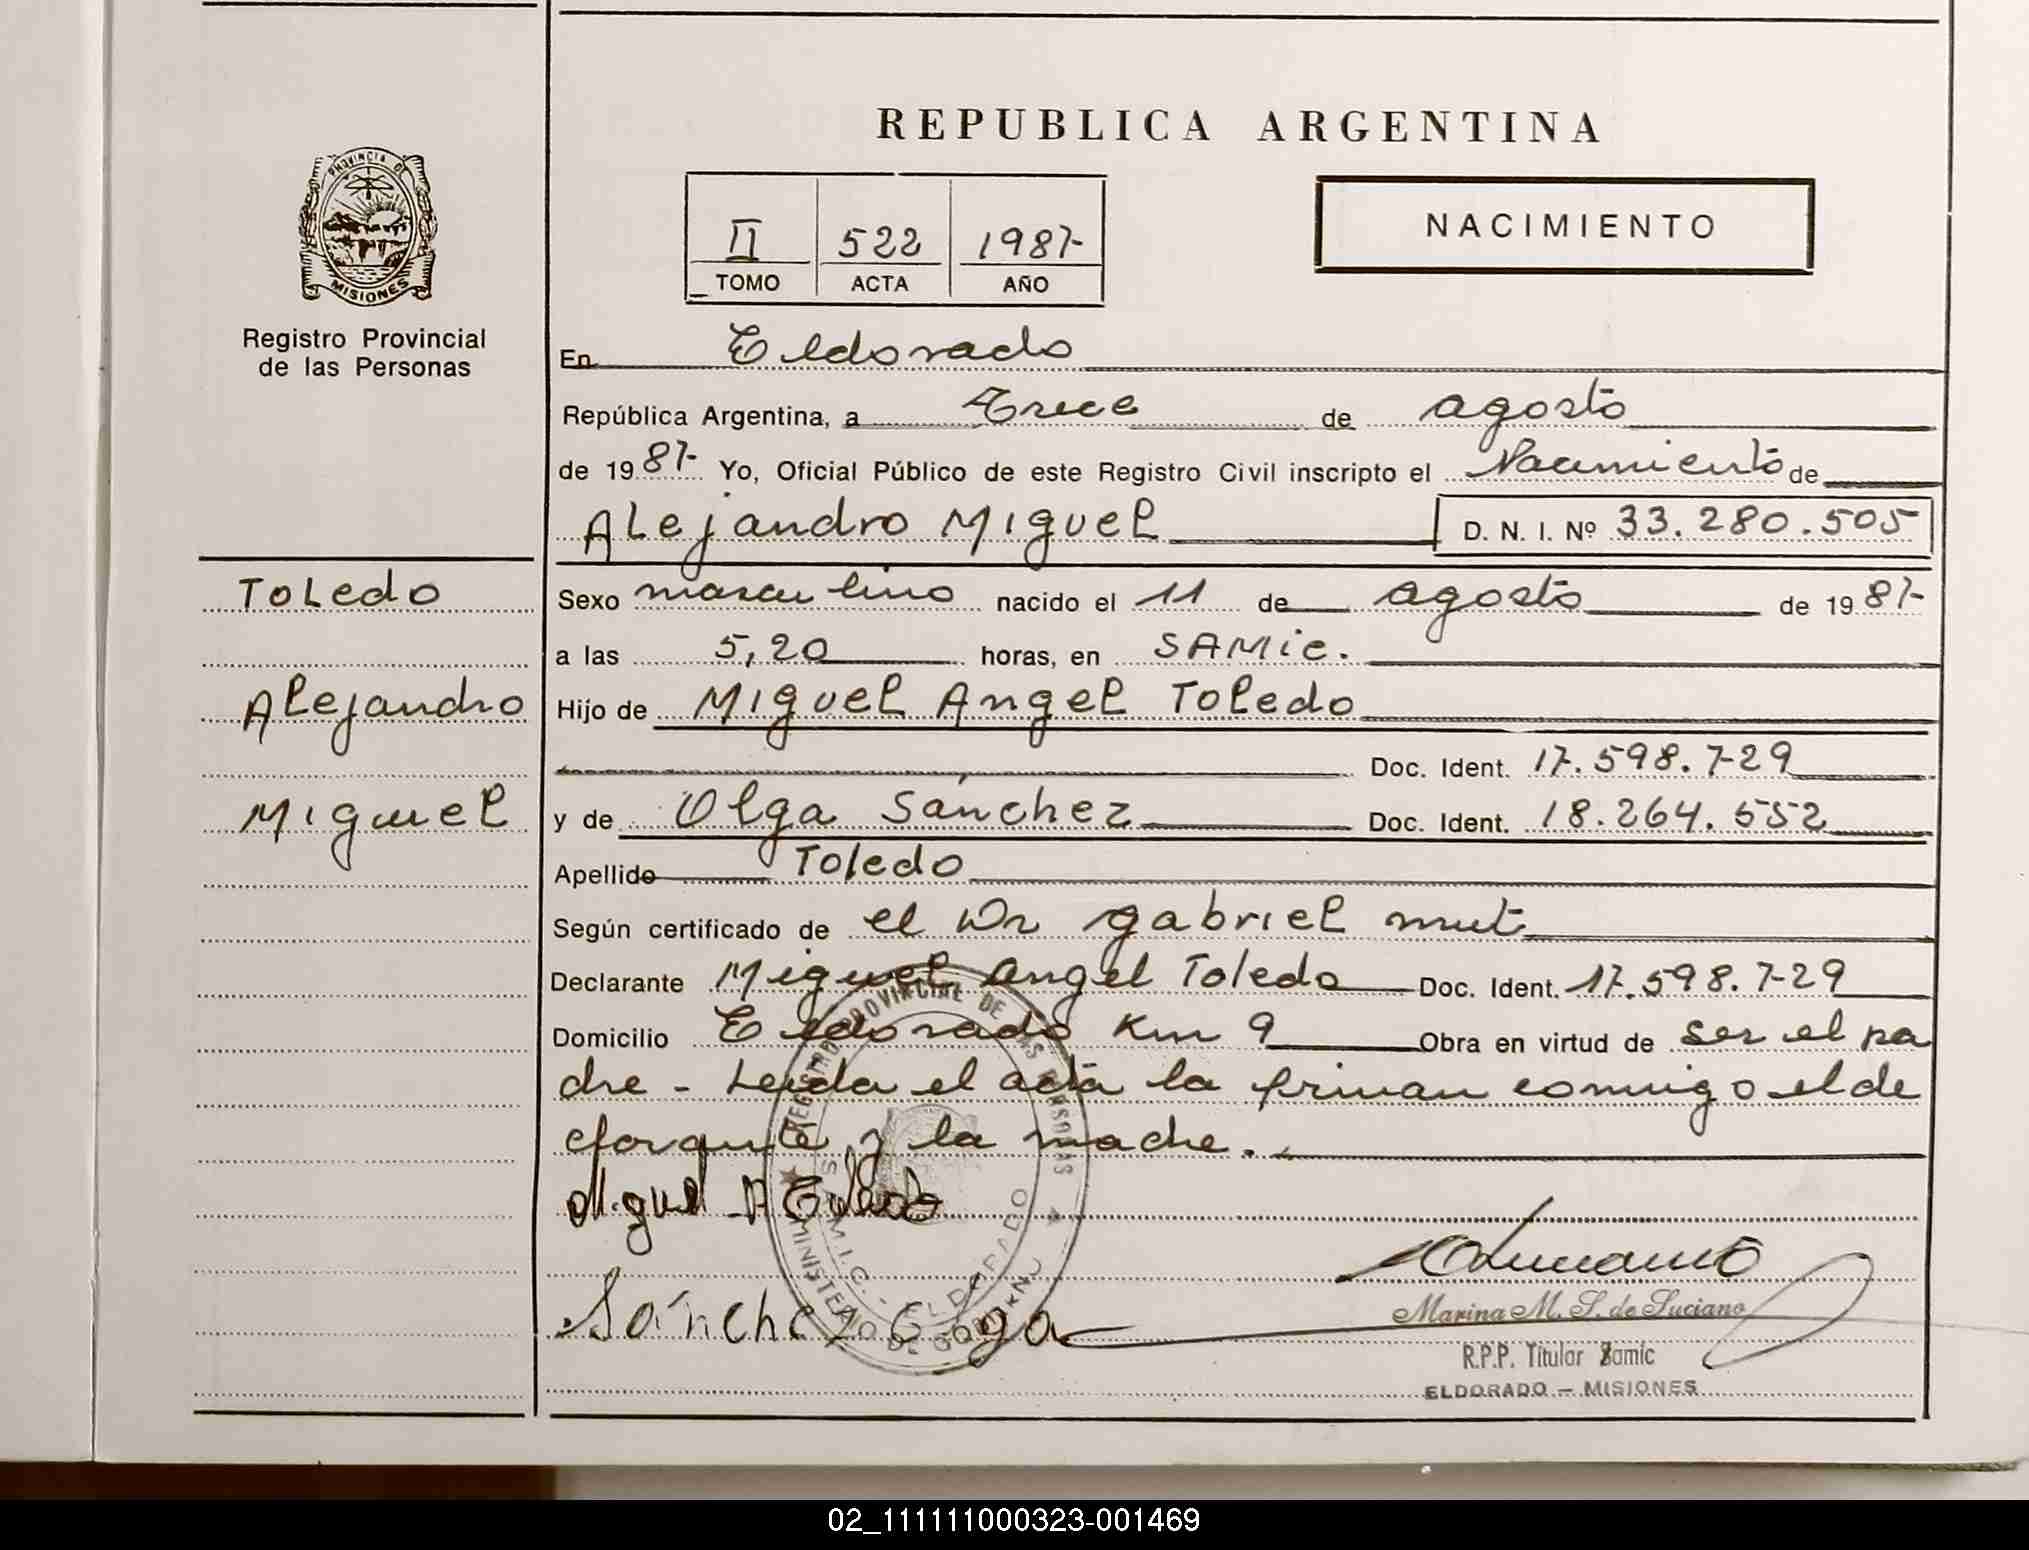 REPUBLICA ARGENTINA
PROVINCIA DE
MISIONES
Registro Provincial
de las Personas
II 522 1987-
TOMO ACTA AÑO
NACIMIENTO
En Eldorado
República Argentina, a Trece de agosto
de 1987- Yo, Oficial Público de este Registro Civil inscripto el Nacimiento de
Alejandro Miguel D. N. I. Nº 33.280.505
Toledo
Alejandro
Miguel
Sexo masculino nacido el 11 de agosto de 1987-
a las 5,20 horas, en SAMic.
Hijo de Miguel Angel Toledo
Doc. Ident. 17.598.729
y de Olga Sánchez Doc. Ident. 18.264.552
Apellido Toledo
Según certificado de el Dr gabriel mut
Declarante Miguel Angel Toledo Doc. Ident. 17.598.729
Domicilio Eldorado Km 9 Obra en virtud de ser el pa
dre - Leida el acta la firman conmigo el de
clarante y la madre.
Miguel A Toledo
Sánchez Olga
REGISTRO PROVINCIAL DE LAS PERSONAS
MINISTERIO DE GOBIERNO
S.A.M.I.C. - ELDORADO
Luciano
Marina M. S. de Luciano
R.P.P. Titular Samic
ELDORADO - MISIONES
02_111111000323-001469